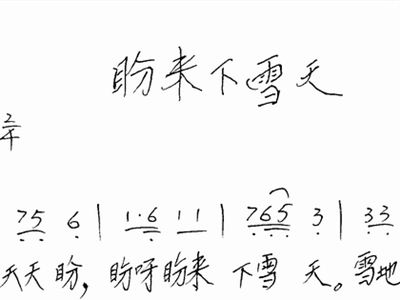 盼来下雪天
2/4
75 6 | 1·6 11 | 765 3 | 33
天天盼，盼呀盼来 下雪 天。雪地